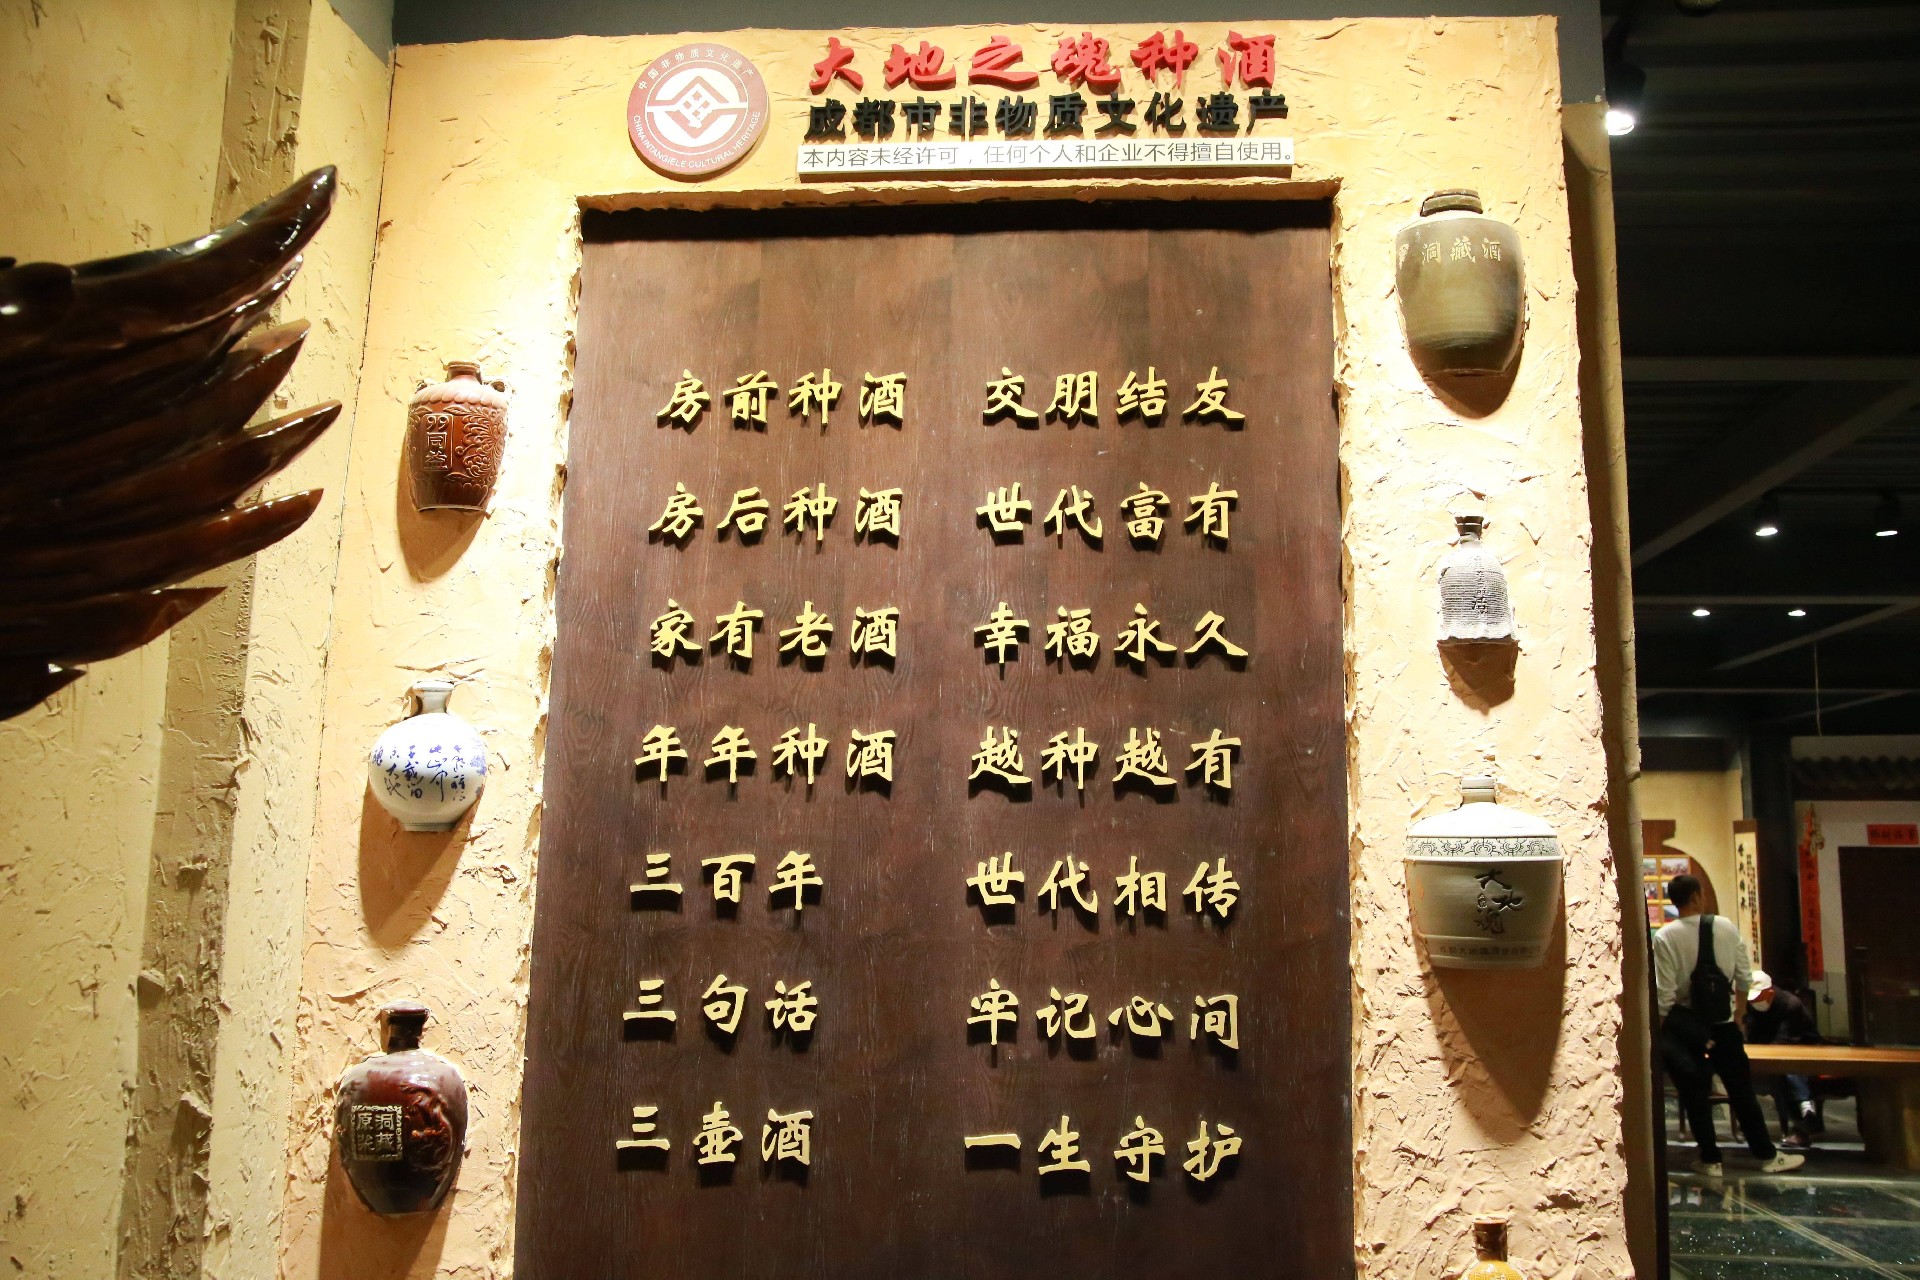 大地之魂种酒
成都市非物质文化遗产
本内容未经许可，任何个人和企业不得擅自使用。
中国非物质文化遗产
CHINA INTANGIELE CULTURAL HERITAGE
房前种酒 交朋结友
房后种酒 世代富有
家有老酒 幸福永久
年年种酒 越种越有
三百年 世代相传
三句话 牢记心间
三壶酒 一生守护
洞藏酒
大地之魂
洞藏